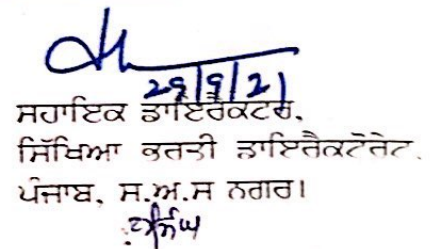 29/9/21
ਸਹਾਇਕ ਡਾਇਰੈਕਟਰ,
ਸਿੱਖਿਆ ਭਰਤੀ ਡਾਇਰੈਕਟੋਰੇਟ,
ਪੰਜਾਬ, ਸ.ਅ.ਸ ਨਗਰ।